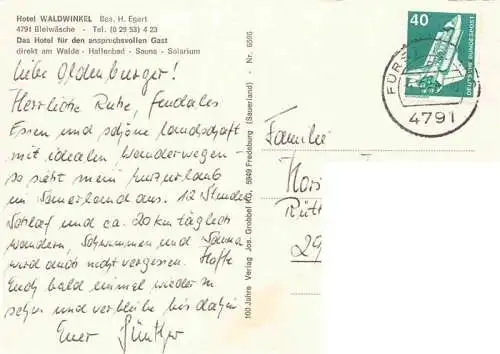 Hotel WALDWINKEL Bes. H. Egert
4791 Bleiwäsche - Tel. (0 29 53) 4 23
Das Hotel für den anspruchsvollen Gast
direkt am Walde - Hallenbad - Sauna - Solarium
Liebe Oldenburger!
Herrliche Ruhe, feudales
Essen und schöne Landschaft
mit idealen Wanderwegen -
so sieht mein Kurzurlaub
im Sauerland aus. 12 Stunden
Schlaf und ca. 20 km täglich
wandern, Schwimmen und Sauna
wird auch nicht vergessen. Hoffe
Euch bald einmal wieder zu
sehen und verbleibe bis dahin
Euer Günther
100 Jahre Verlag Jos. Grobbel KG, 5949 Fredeburg (Sauerland) - Nr. 6586
40
DEUTSCHE BUNDESPOST
FÜRS
4791
Familie
Hors
Rütt
29